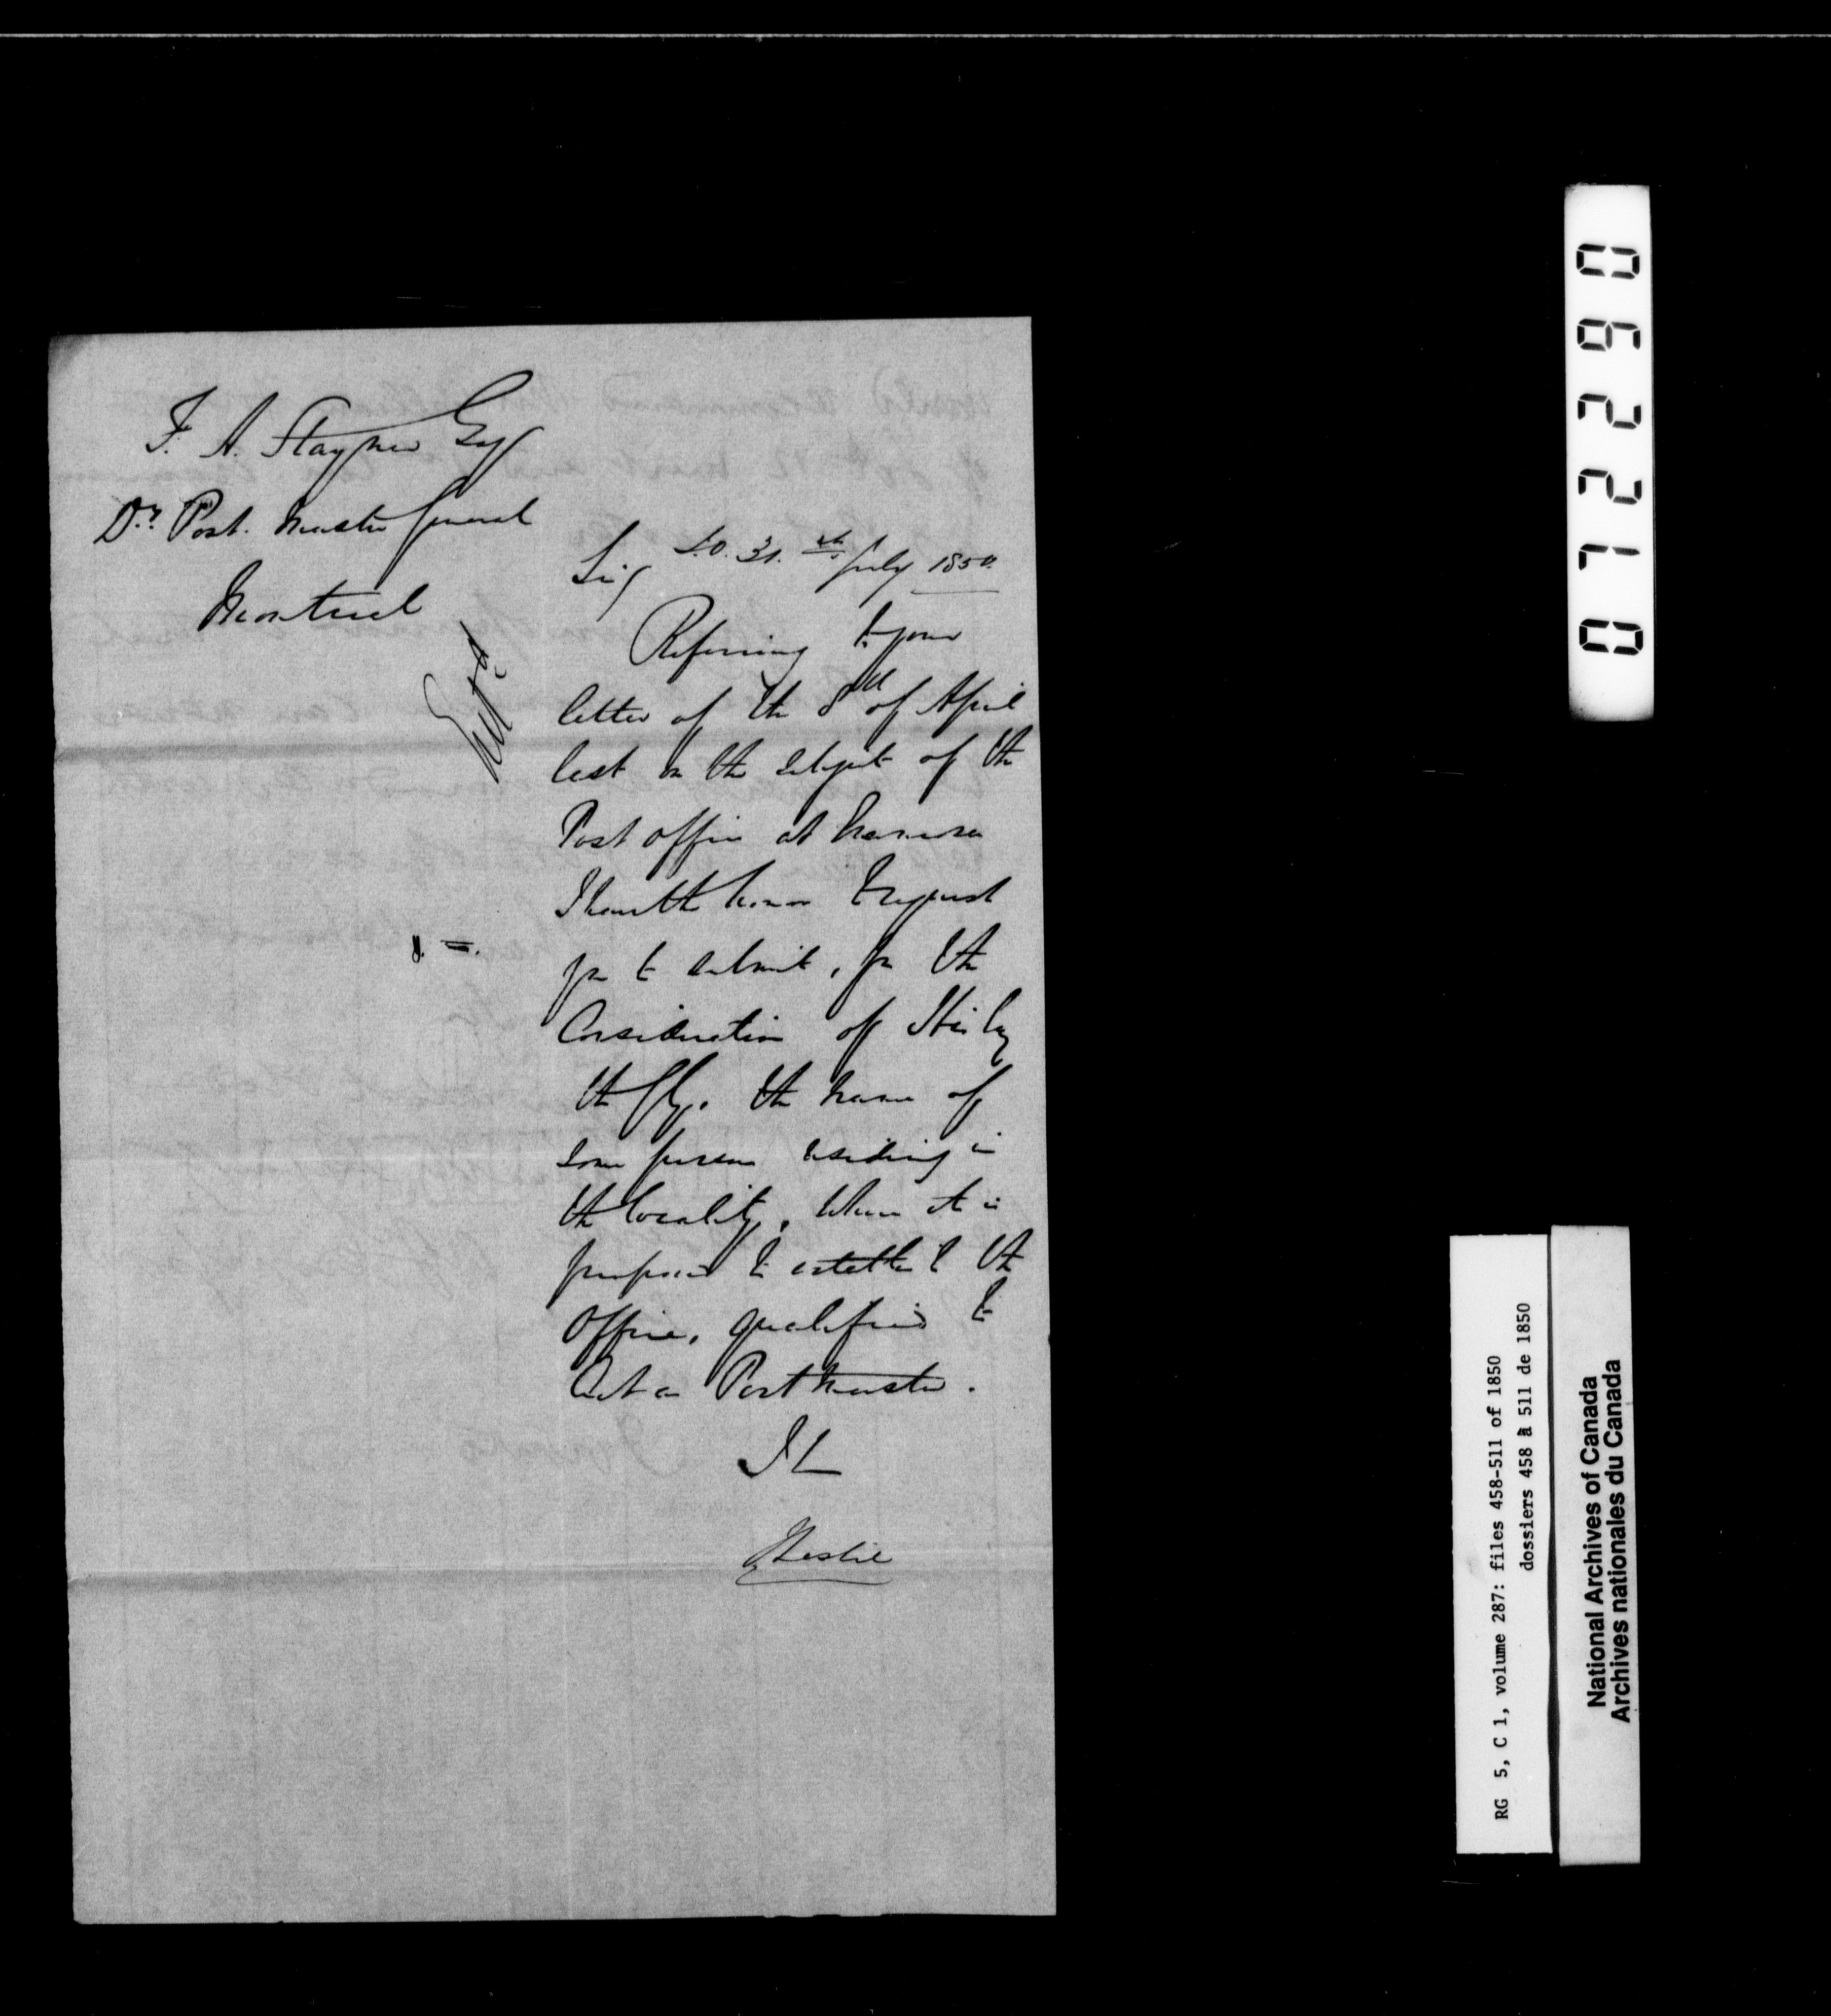 T. A. Stayner Esq
Dy. Post. Master General
Montreal
S.O. 31.st July 1850.
Sir
Entd
Referring to your
letter of the 8th of April
last on the subject of the
Post office at
I have the honor to request
you to submit, for the
Consideration of His Exy
the the name of
some person residing in
the locality, where it is
proposed to establish the
Office, qualified to
Act as Postmaster.
JL
JLeslie
072290
RG 5, C 1, volume 287: files 458-511 of 1850
dossiers 458 à 511 de 1850
National Archives of Canada
Archives nationales du Canada